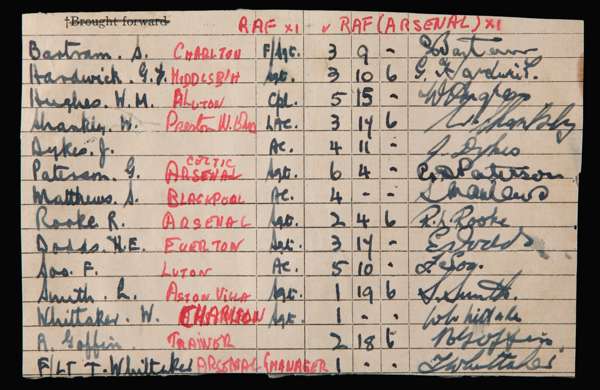 †Brought forward RAF XI v RAF (ARSENAL) XI
Bartram. S. CHARLTON F/Sgt. 3 9 - S Bartram
Hardwick. G.F. MIDDLESB'H Sgt. 3 10 6 G. F. Hardwick.
Hughes. W.M. LUTON Cpl. 5 15 - W Hughes
Shankly. W. PRESTON N. LAC. 3 14 6 W Shankly
Dykes. J. AC. 4 11 - J. Dykes
Paterson. G. CELTIC ARSENAL Sgt. 6 4 - G Paterson
Matthews. S. BLACKPOOL AC. 4 - - S Matthews
Rooke R. ARSENAL Sgt. 2 4 6 R. L. Rooke
Dodds. H.E. EVERTON Sgt. 3 14 - E Dodds
Soo. F. LUTON AC. 5 10 - F Soo.
Smith. L. ASTON VILLA Sgt. 1 19 6 L. Smith.
Whittaker. W. CHARLTON Sgt. 1 - - W. Whittaker
R. Goffin. TRAINER 2 18 6 R Goffin.
F/LT T. Whittaker ARSENAL (MANAGER) 1 - - T Whittaker